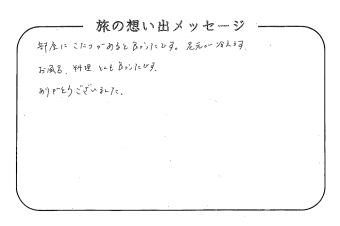 旅の想い出メッセージ
部屋に こたつがあると良かったです。足元が冷えます。
お風呂、料理 とても良かったです。
ありがとうございました。